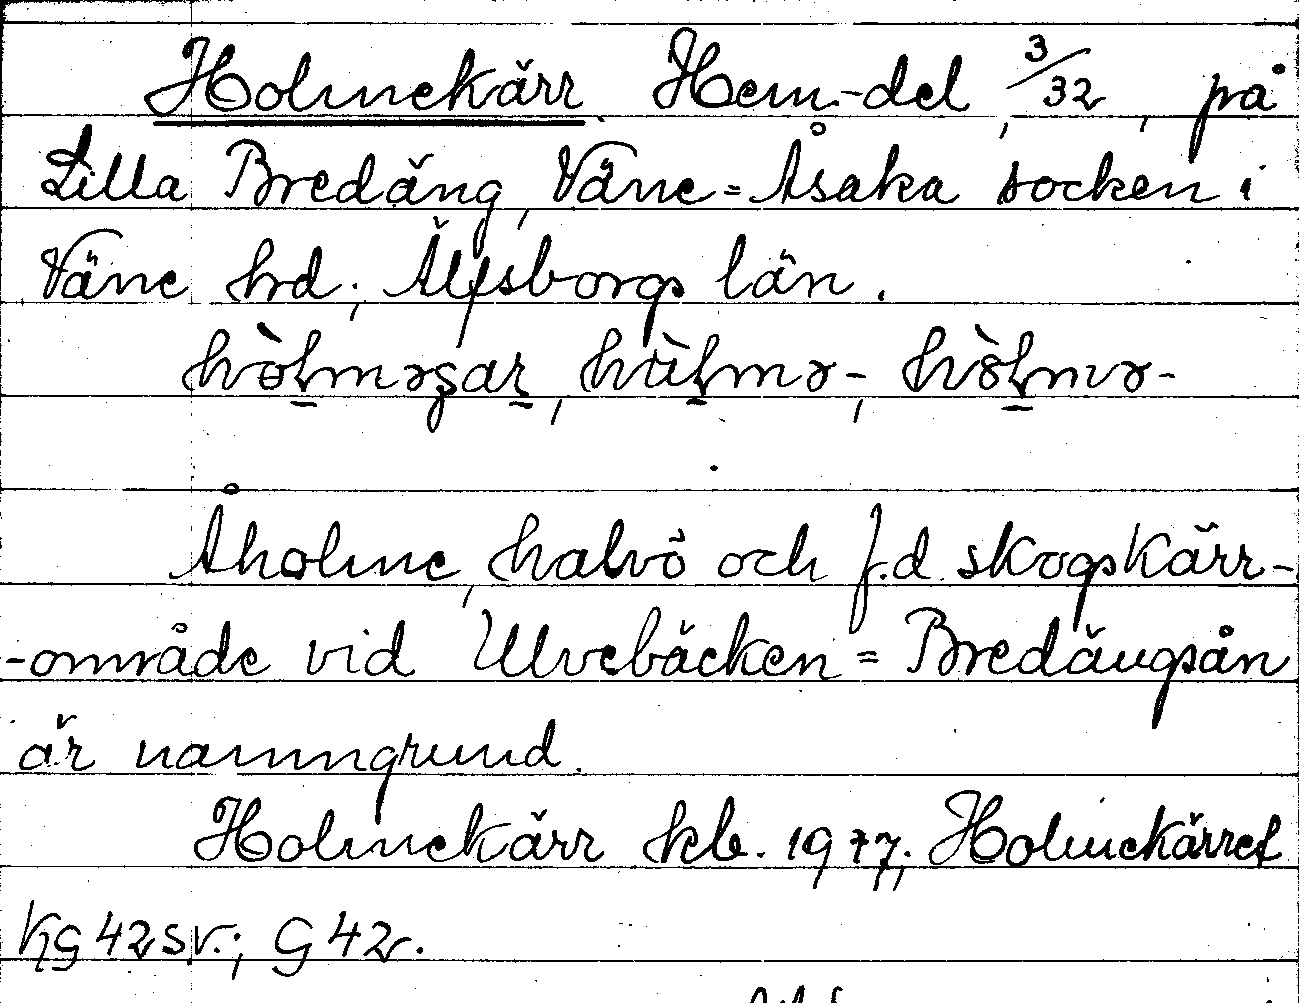 Holmekärr. Hem.-del, 3/32, på
Lilla Bredäng, Väne=Åsaka socken i
Väne hrd; Älfsborgs län.
hòl̠məʒar̠, hùl̠mə-, hòl̠mə-
Åholme, halvö och f.d. skogskärr-
-område vid Ulvebäcken = Bredängsån
är namngrund.
Holmekärr kb. 1977; Holmekärret
KG 42 sv.; G 42.